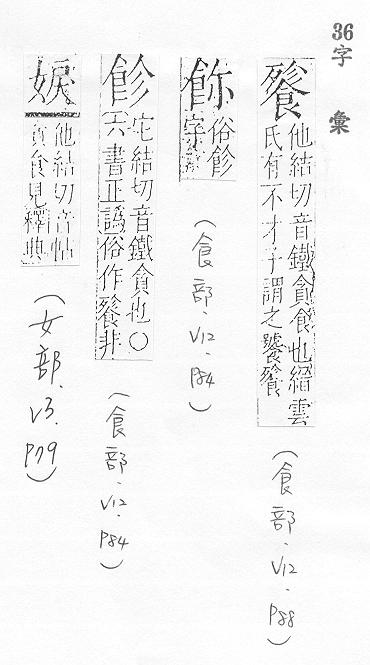 36
字彙
餮
他結切音鐵貪食也縉雲
氏有不才子謂之饕餮
(食部.V12.P88)
俗飻
字
(食部.V12.P84)
飻
它結切音鐵貪也○
六書正譌俗作餮非
(食部.V12.P84)
他結切音帖
貪食見釋典
(女部.V3.P79)